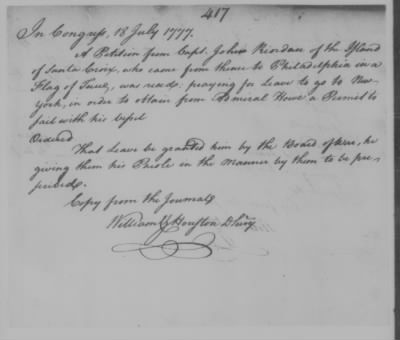 417
In Congress, 18 July 1777.
A Petition from Capt. John Riordan of the Island
of Santa Croix, who came from thence to Philadelphia in a
Flag of Truce, was read; praying for Leave to go to New-
York, in order to obtain from Admiral Howe a Permit to
sail with his Vessel
Ordered
That Leave be granted him by the Board of War, he
giving them his Parole in the manner by them to be pre-
scribed.
Copy from the Journals
William Ch Houston D Secy